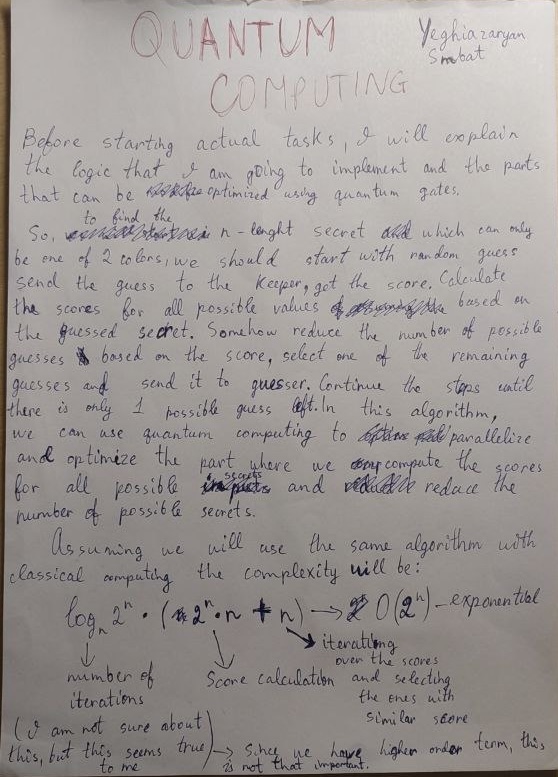 QUANTUM
COMPUTING
Yeghiazaryan
Smbat
Before starting actual tasks, I will explain
the logic that I am going to implement and the parts
that can be optimized using quantum gates.
to find the
So, n-lenght secret which can only
be one of 2 colors, we should start with random guess
send the guess to the Keeper, got the score. Calculate
the scores for all possible values based on
the guessed secret. Somehow reduce the number of possible
guesses based on the score, select one of the remaining
guesses and send it to guesser. Continue the steps until
there is only 1 possible guess left. In this algorithm,
we can use quantum computing to parallelize
and optimize the part where we compute the scores
secrets
for all possible and reduce the
number of possible secrets.
Assuming we will use the same algorithm with
classical computing the complexity will be:
logₙ 2ⁿ · (2ⁿ · n + n) → O(2ⁿ) - exponential
number of
iterations
Score calculation
iterating
over the scores
and selecting
the ones with
similar score
(I am not sure about
this, but this seems true
to me)
→ Since we have higher order term, this
is not that important.